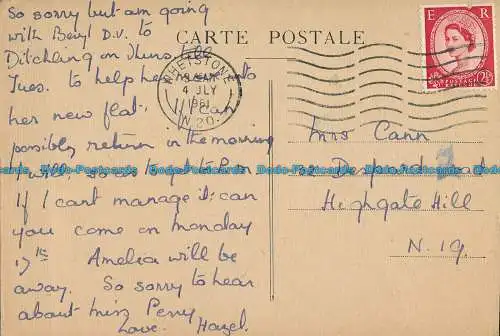 So sorry but am going
with Beryl D.V. to
Ditchling on Thurs till
Tues. to help her into
her new flat. If I can
possibly return in the morning
I will, so as to get to Pen
If I cant manage it, can
you come on Monday
17th Amelia will be
away. So sorry to hear
about Miss Perry
Love. Hazel.
CARTE POSTALE
WHETSTONE
4 JLY
1961
N.20.
E R
POSTAGE
REVENUE
2½D
Mrs Cann
32 Despard Road
Highgate Hill
N.19.
Dodo-Postcards Dodo-Postcards Dodo-Postcards Dodo-Postcards Dodo-Postcards Dodo-Postcards